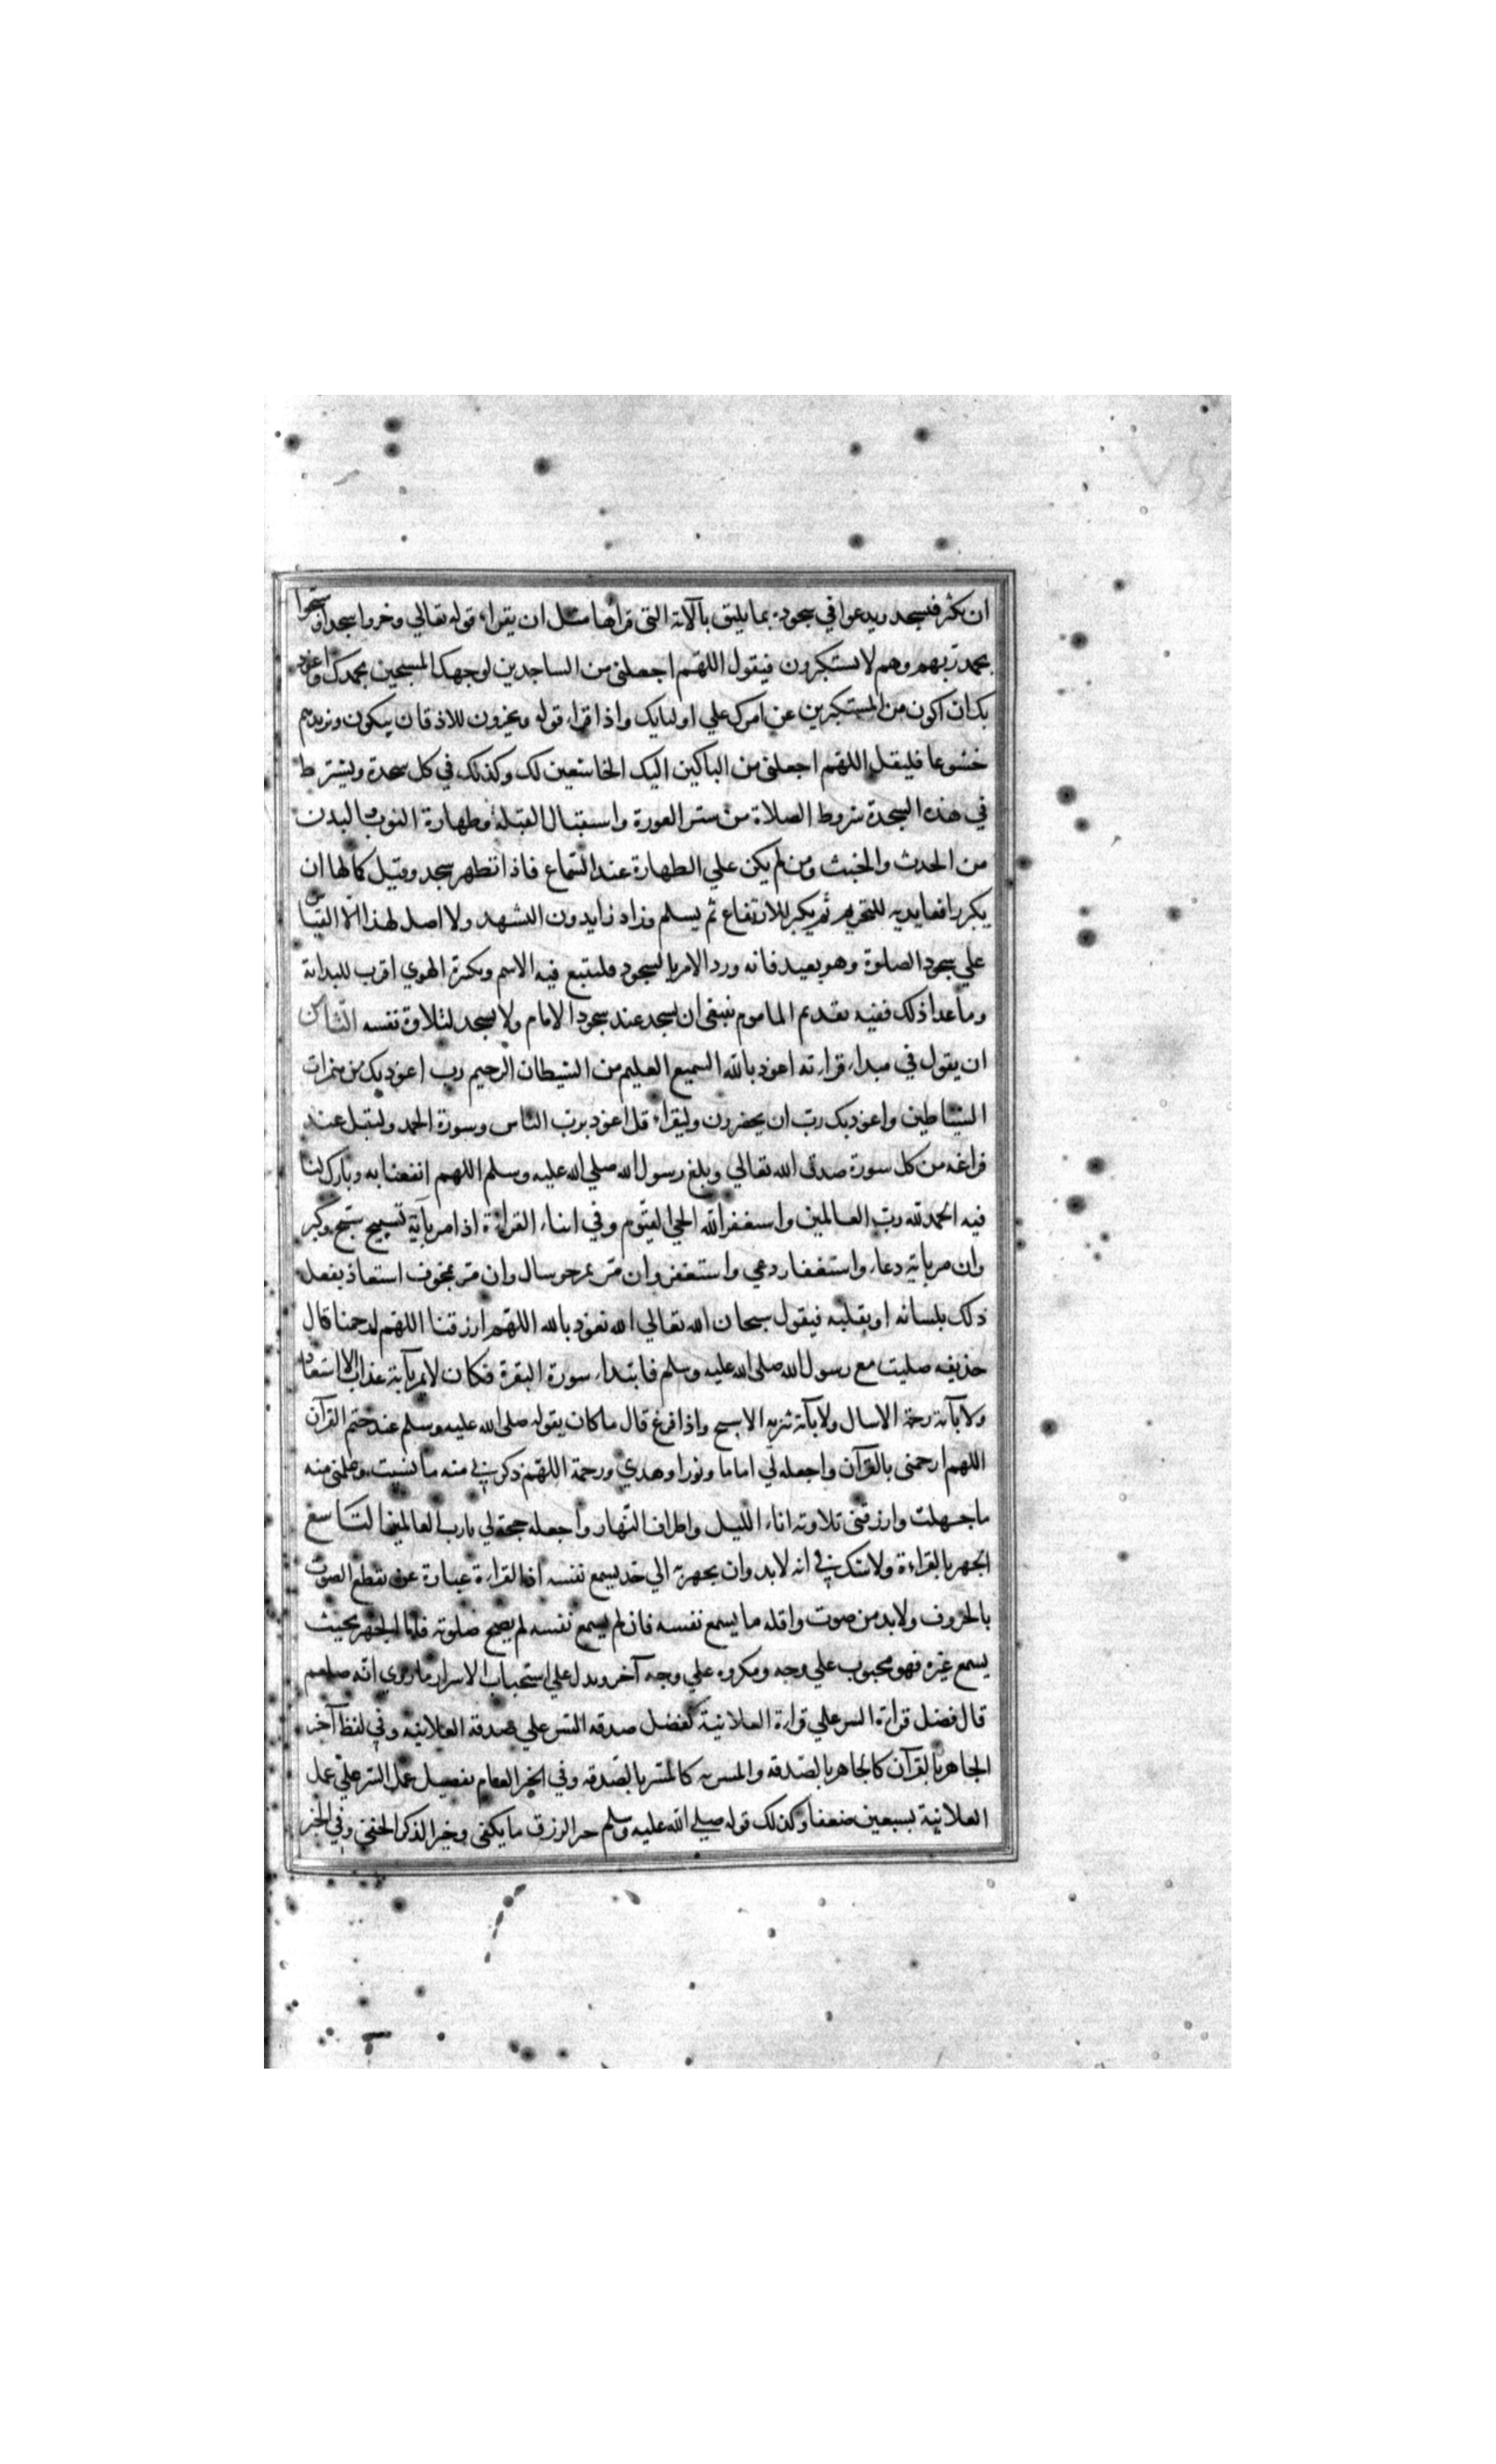 ان يكثر فيسجد ويدعوا في سجوده بما يليق بالآية التي قرأها مثل ان يقراء قوله تعالي وخروا سجدا وسبحوا
بحمد ربهم وهم لا يستكبرون فيقول اللهم اجعلني من الساجدين لوجهك المسبحين بحمدك واعوذ
بك ان اكون من المستكبرين عن امرك علي اوليايك واذا قراء قوله ويخرون للاذقان يبكون ويزيدهم
خشوعا فليقل اللهم اجعلني من الباكين اليك الخاشعين لك وكذلك في كل سجدة ويشترط
في هذه السجدة شروط الصلاة من ستر العورة واستقبال القبلة وطهارة الثوب والبدن
من الحدث والخبث ومن لم يكن علي الطهارة عند السماع فاذا تطهر سجد وقيل كمالها ان
يكبر رافعا يديه للتحريم ثم يكبر للارتفاع ثم يسلم وزاد زايدون التشهد ولا اصل لهذا الا القياس
علي سجود الصلوة وهو بعيد فانه ورد الامر بالسجود فليتبع فيه الاسم وتكبرة الهوي اقرب للبداية
وما عدا ذلك ففيه بعد ثم الماموم ينبغي ان يسجد عند سجود الامام ولا يسجد لتلاوة نفسه الثامن
ان يقول في مبداء قراءته اعوذ بالله السميع العليم من الشيطان الرجيم رب اعوذ بك من همزات
الشياطين واعوذ بك رب ان يحضرون وليقراء قل اعوذ برب الناس وسورة الحمد وليقل عند
فراغه من كل سورة صدق الله تعالي وبلغ رسول الله صلي الله عليه وسلم اللهم انفعنا به وبارك لنا
فيه الحمد لله رب العالمين واستغفر الله الحي القيوم وفي اثناء القراءة اذا مر بآية تسبيح سبح وكبر
وان مر باية دعاء واستغفار دعي واستغفر وان مر بمرجو سال وان مر بمخوف استعاذ يفعل
ذلك بلسانه او بقلبه فيقول سبحان الله تعالي الله نعوذ بالله اللهم ارزقنا اللهم ارحمنا قال
حذيفه صليت مع رسول الله صلى الله عليه وسلم فابتداء سورة البقرة فكان لا يمر بآية عذاب الا استعاذ
ولا بآية رحمة الا سال ولا بآية تنزيه الا سبح واذا فرغ قال ما كان يقوله صلى الله عليه وسلم عند ختم القرآن
اللهم ارحمني بالقرآن واجعله لي اماما ونورا وهدي ورحمة اللهم ذكرني منه ما نسيت وعلمني منه
ما جهلت وارزقني تلاوته اناء الليل واطراف النهار واجعله حجة لي يا رب العالمين التاسع
الجهر بالقراءة ولا شك في انه لا بد وان يجهر به الي حد يسمع نفسه اذ القراءة عبارة عن تقطع الصوت
بالحروف ولا بد من صوت واقله ما يسمع نفسه فان لم يسمع نفسه لم يصح صلوته فاما الجهر بحيث
يسمع غيره فهو محبوب علي وجه ومكروه علي وجه آخر ويدل علي استحباب الاسرار ما روي انه صلعم
قال فضل قراءة السر علي قراءة العلانية كفضل صدقه السر علي صدقة العلانيه وفي لفظ آخر
الجاهر بالقرآن كالجاهر بالصدقه والمسر به كالمسر بالصدقه وفي الخبر العام يفضل عمل السر علي عمل
العلانية بسبعين ضعفا وكذلك قوله صلي الله عليه وسلم خير الرزق ما يكفي وخير الذكر الخفي وفي الخبر